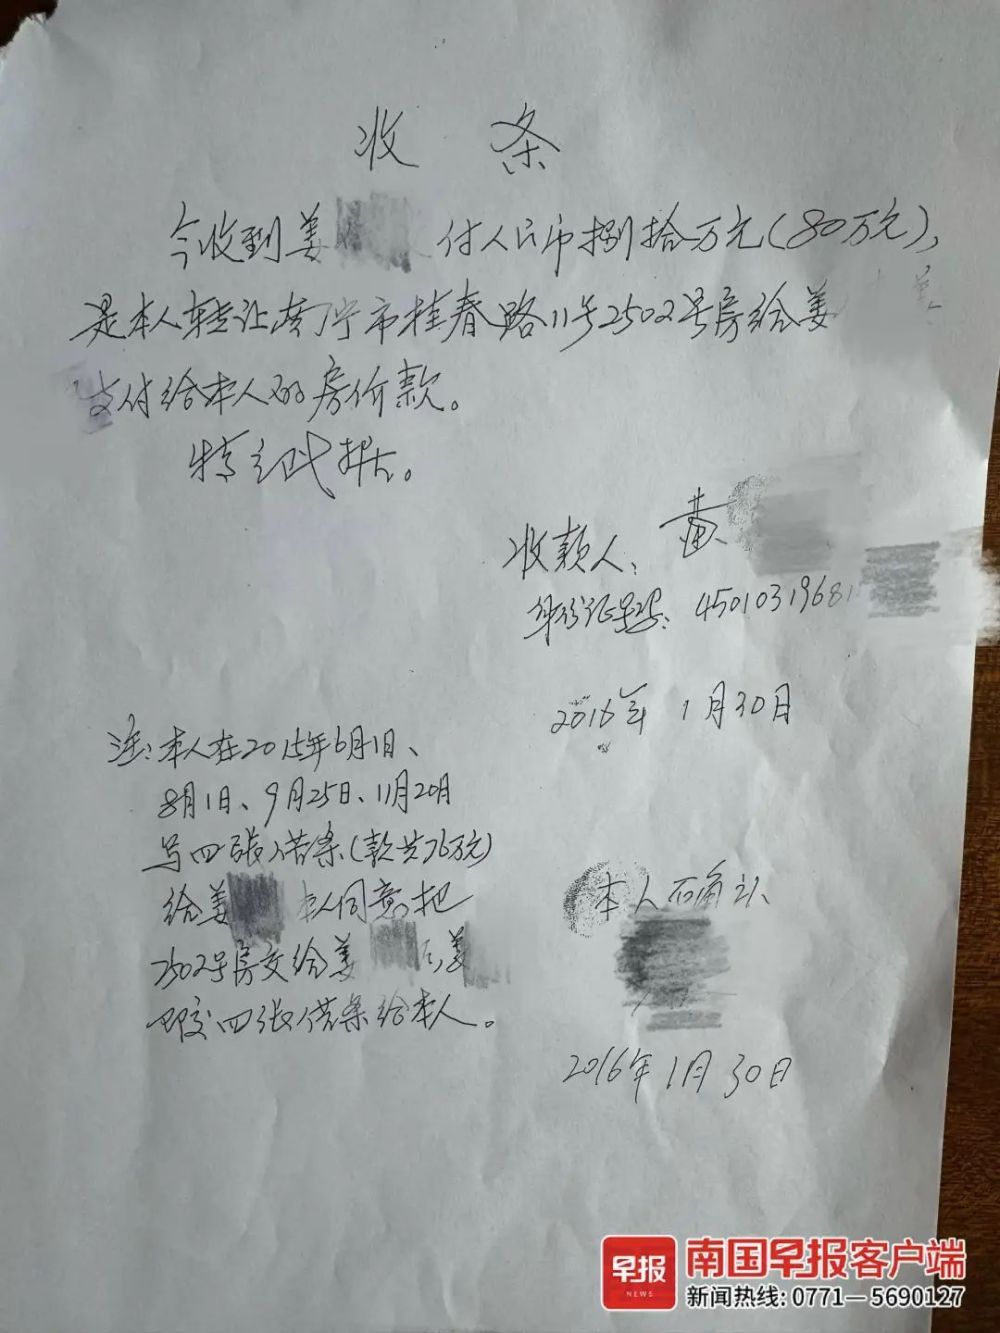 收 条
今收到姜 付人民币捌拾万元(80万元),
是本人转让南宁市桂春路11号2502号房给姜
支付给本人的房价款。
特立此据。
收款人: 黄
身份证号码: 4501031968
2016年 1月30日
注:本人在2015年6月1日、
8月1日、9月25日、11月20日
写四张借条(款共76万元)
给姜 本人同意把
2502号房交给姜 姜
即交四张借条给本人。
本人 确认
2016年1月30日
早报
NEWS
南国早报客户端
新闻热线: 0771—5690127